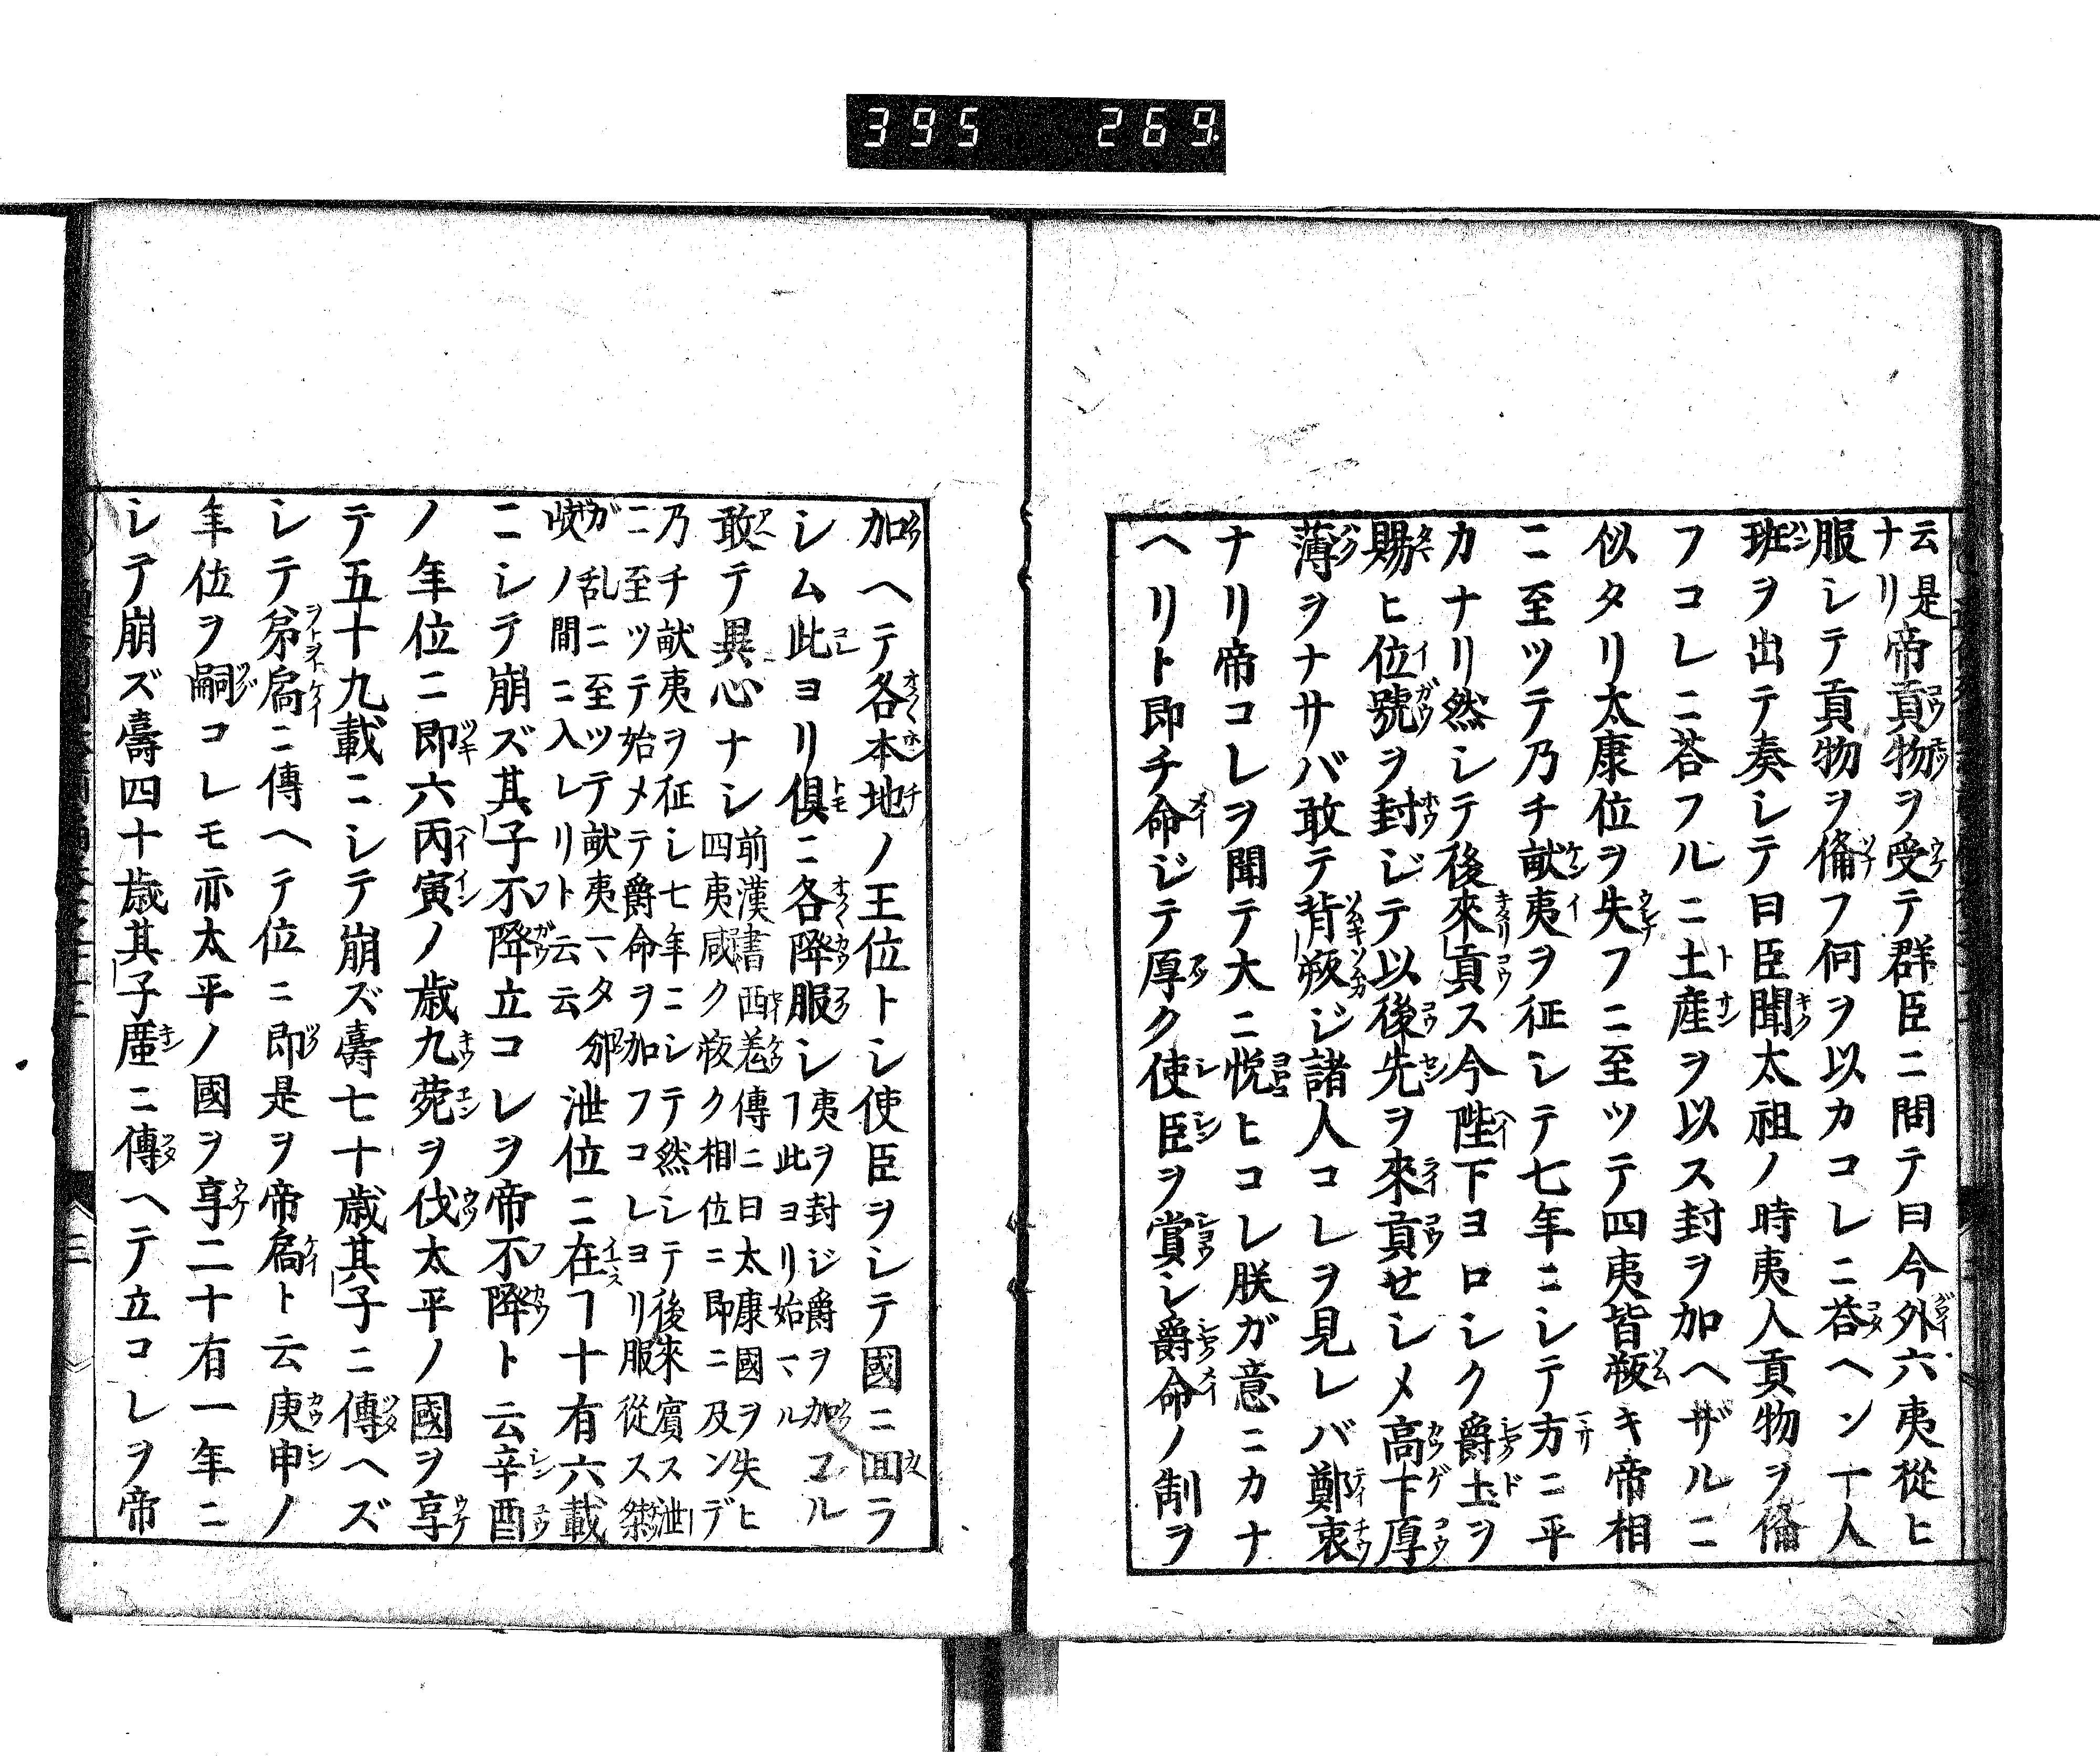 395 269
云是帝貢物ヲ受テ群臣ニ問テ曰今外六夷從ヒ
ナリ
服シテ貢物ヲ備フ何ヲ以カコレニ荅ヘン一人
班ヲ出テ奏シテ曰臣聞太祖ノ時夷人貢物ヲ備
フコレニ荅フルニ土産ヲ以ス封ヲ加ヘザルニ
似タリ太康位ヲ失フニ至ツテ四夷皆叛キ帝相
ニ至ツテ乃チ献夷ヲ征シテ七年ニシテ方ニ平
カナリ然シテ後來貢ス今陛下ヨロシク爵土ヲ
賜ヒ位號ヲ封ジテ以後先ヲ來貢せシメ高下厚
薄ヲナサバ敢テ背叛ジ諸人コレヲ見レバ鄭衷
ナリ帝コレヲ聞テ大ニ悦ヒコレ朕ガ意ニカナ
ヘリト即チ命ジテ厚ク使臣ヲ賞シ爵命ノ制ヲ
加ヘテ各本地ノ王位トシ使臣ヲシテ國ニ囬ラ
シム此ヨリ倶ニ各降服シ夷ヲ封ジ爵ヲ加ユル
ヿ此ヨリ始マル
敢テ異心ナシ前漢書西羗傳ニ曰太康國ヲ失ヒ
四夷咸ク叛ク相位ニ即ニ及ンデ
乃チ献夷ヲ征シ七年ニシテ然シテ後來賓ス泄
ニ至ツテ始メテ爵命ヲ加フコレヨリ服從ス桀
ガ乱ニ至ツテ献夷マタ邠泄位ニ在ヿ十有六載
岐ノ間ニ入レリト云云
ニシテ崩ズ其子不降立コレヲ帝不降ト云辛酉
ノ年位ニ即六丙寅ノ歳九菀ヲ伐太平ノ國ヲ享
テ五十九載ニシテ崩ズ壽七十歳其子ニ傳ヘズ
シテ弟扃ニ傳ヘテ位ニ即是ヲ帝扃ト云庚申ノ
年位ヲ嗣コレモ亦太平ノ國ヲ享二十有一年ニ
シテ崩ズ壽四十歳其子廑ニ傳ヘテ立コレヲ帝
三